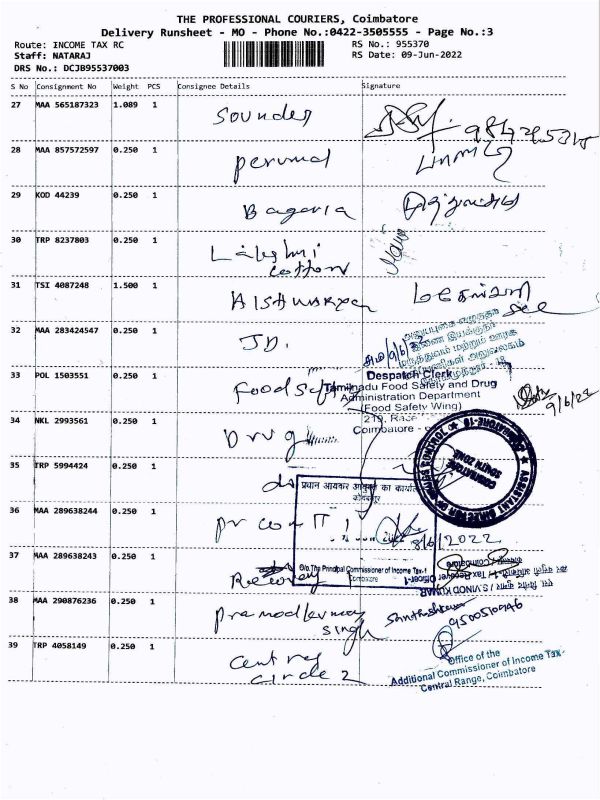 THE PROFESSIONAL COURIERS, Coimbatore
Delivery Runsheet - MO - Phone No.:0422-3505555 - Page No.:3
Route: INCOME TAX RC
RS No.: 955370
Staff: NATARAJ
RS Date: 09-Jun-2022
DRS No.: DCJB95537003
S No Consignment No Weight PCS Consignee Details Signature
27 MAA 565187323 1.089 1 Sounder
28 MAA 857572597 0.250 1 perumal
29 KOD 44239 0.250 1 Bagaria
30 TRP 8237803 0.250 1 Lakshmi
cotton
31 TSI 4087248 1.500 1 AISHWARYA
32 MAA 283424547 0.250 1 JD.
33 POL 1503551 0.250 1 Food
Despatch Clerk
Tamilnadu Food Safety and Drug
Administration Department
(Food Safety Wing)
219, Race
Coimbatore -
9/6/22
34 NKL 2993561 0.250 1 Drug
ASSISTANT DIRECTOR OF DRUGS CONTROL
COIMBATORE-18
COIMBATORE
SOUTH ZONE
35 TRP 5994424 0.250 1
प्रधान आयकर आयुक्त का कार्यालय
कोयम्बत्तूर
36 MAA 289638244 0.250 1 pr com IT 1
8/6/2022
O/o. The Principal Commissioner of Income Tax-1
Coimbatore
37 MAA 289638243 0.250 1 Recovery
S VINOD KUMAR
Tax Recovery Officer-1
Coimbatore
38 MAA 290876236 0.250 1
singh
39 TRP 4058149 0.250 1 Central
circle 2
Office of the
Additional Commissioner of Income Tax-
Central Range, Coimbatore